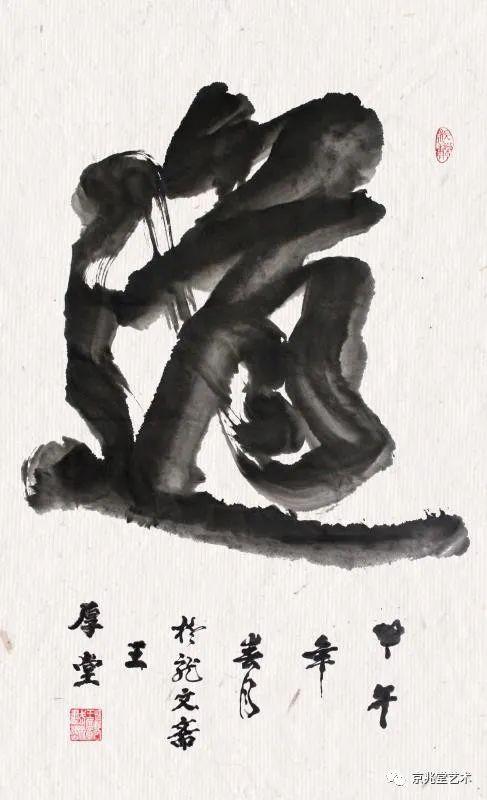 道
甲午
年
春月
於龍文斋
王
厚堂
京兆堂艺术